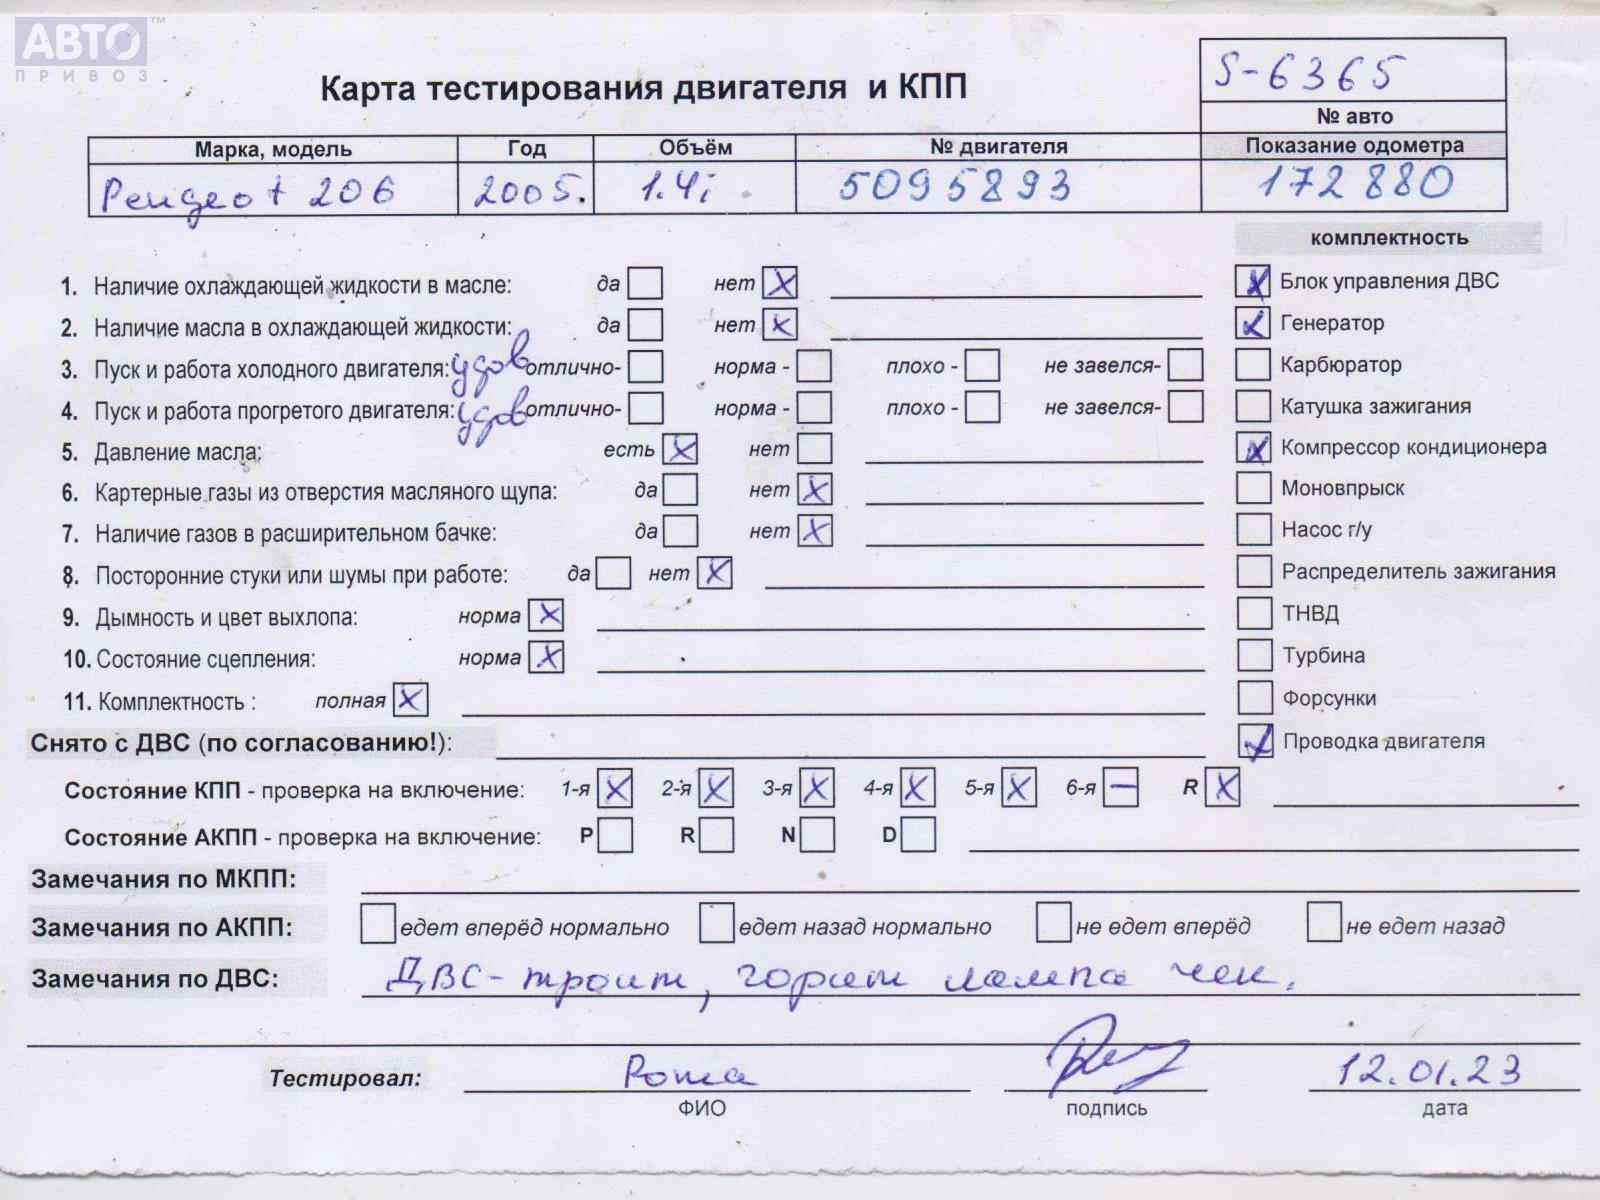 АВТО™
ПРИВОЗ
Карта тестирования двигателя и КПП
S-6365
№ авто
Марка, модель Год Объём № двигателя Показание одометра
Peugeot 206 2005. 1.4i 5095893 172880
комплектность
1. Наличие охлаждающей жидкости в масле: да нет X Блок управления ДВС X
2. Наличие масла в охлаждающей жидкости: да нет X Генератор ✓
3. Пуск и работа холодного двигателя: удов отлично- норма - плохо - не завелся- Карбюратор
4. Пуск и работа прогретого двигателя: удов отлично- норма - плохо - не завелся- Катушка зажигания
5. Давление масла: есть X нет Компрессор кондиционера X
6. Картерные газы из отверстия масляного щупа: да нет X Моновпрыск
7. Наличие газов в расширительном бачке: да нет X Насос г/у
8. Посторонние стуки или шумы при работе: да нет X Распределитель зажигания
9. Дымность и цвет выхлопа: норма X ТНВД
10. Состояние сцепления: норма X Турбина
11. Комплектность : полная X Форсунки
Снято с ДВС (по согласованию!): Проводка двигателя ✓
Состояние КПП - проверка на включение: 1-я X 2-я X 3-я X 4-я X 5-я X 6-я — R X
Состояние АКПП - проверка на включение: P R N D
Замечания по МКПП:
Замечания по АКПП: едет вперёд нормально едет назад нормально не едет вперёд не едет назад
Замечания по ДВС: ДВС - троит, горит лампа чек.
Тестировал: Рома 12.01.23
ФИО подпись дата